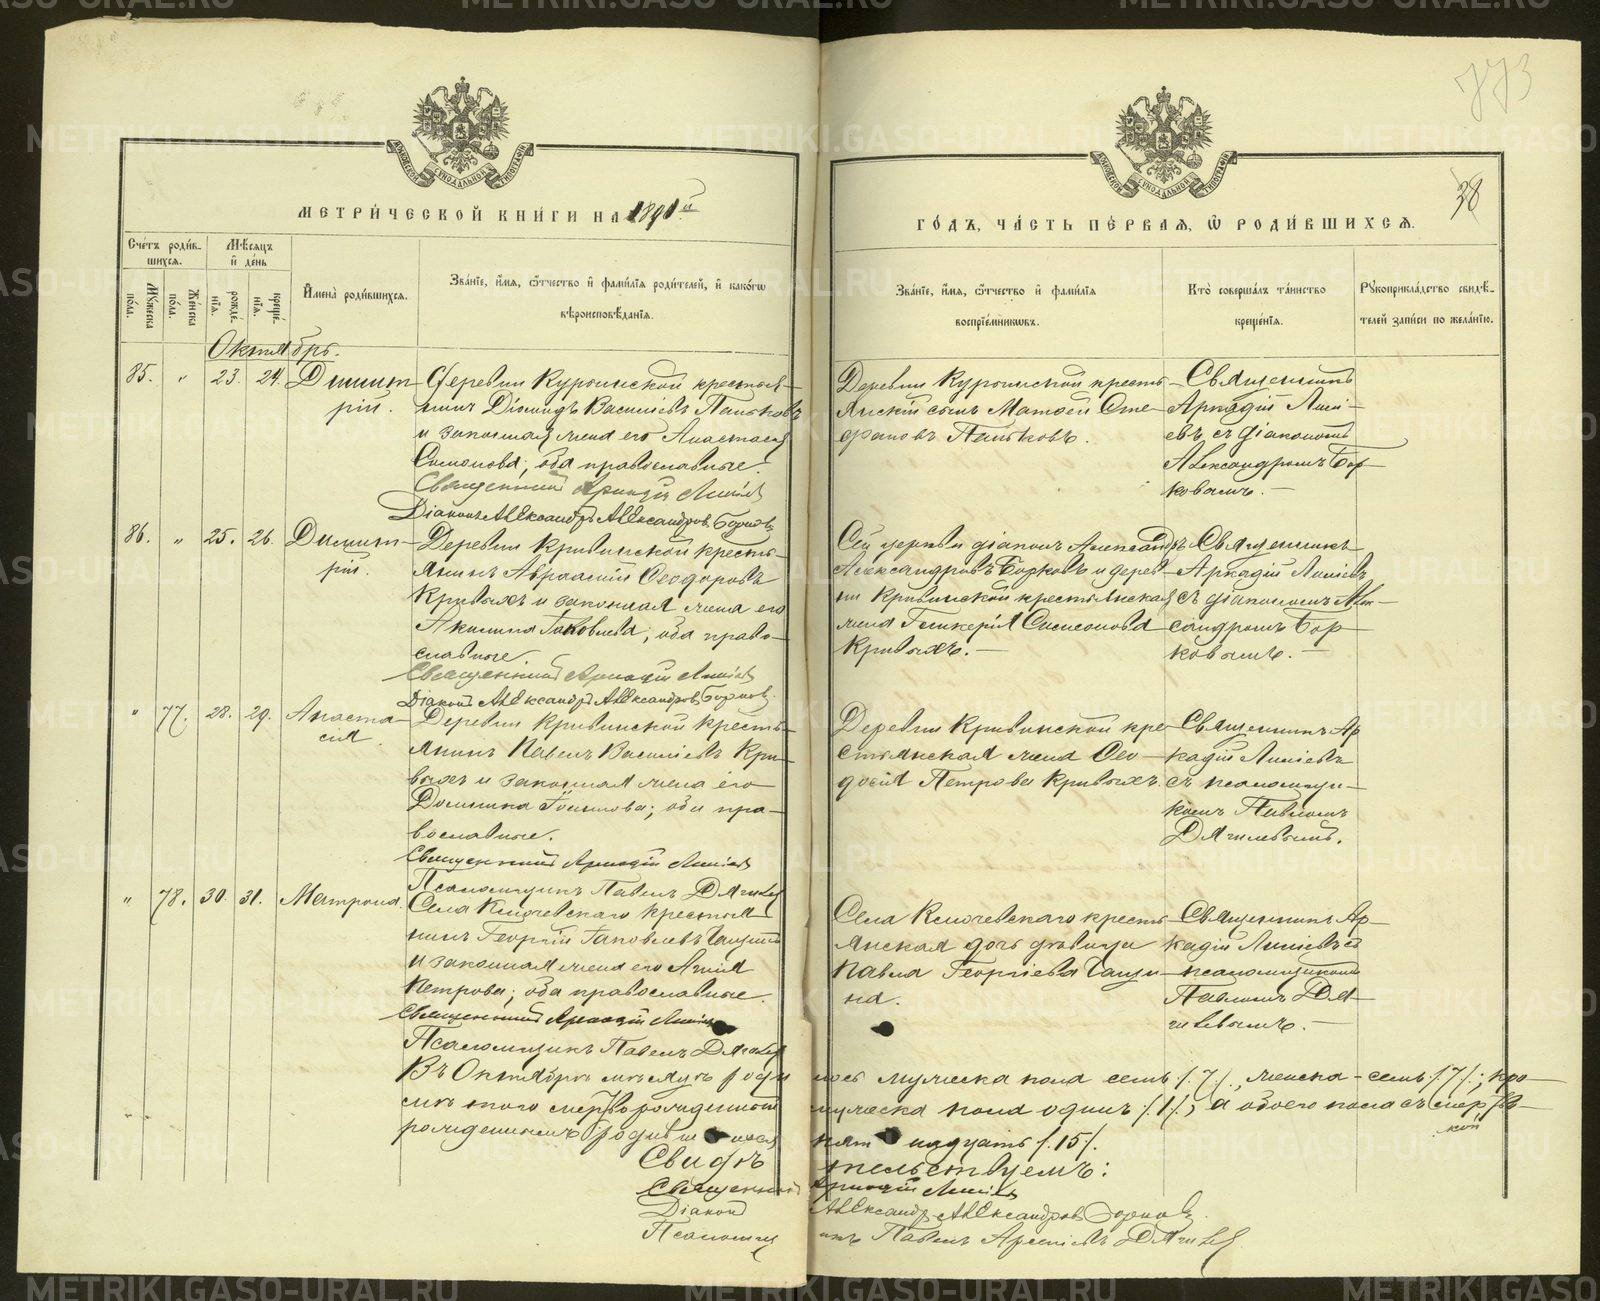 773
38
МЕТРИЧЕСКОЙ КНИГИ НА 1891й
ГОДЪ, ЧАСТЬ ПЕРВАЯ, Ѡ РОДИВШИХСЯ.
Счетъ родившихся.
Мѣсяцъ и день
Мужеска пола.
Женска пола.
рожденія.
крещенія.
Имена родившихся.
Званіе, имя, ѿчество и фамилія родителей, и какогѡ
вѣроисповѣданія.
Званіе, имя, ѿчество и фамилія
воспріемникωвъ.
Кто совершалъ таинство
крещенія.
Рукоприкладство свидѣ-
телей записи по желанію.
Октябрь.
85. " 23. 24. Димит-
рій.
Деревни Курьинской крестья-
нинъ Василіевъ Паньковъ
и законная жена его Анастасія
оба православные.
Священникъ Аркадій
Діаконъ Александръ Александровъ Борков
Деревни Курьинской кресть-
янскій сынъ Матѳей Сте-
фановъ Паньковъ.
Священникъ
Аркадій
евъ съ діакономъ
Александромъ Бор-
ковымъ.
86. " 25. 26. Димит-
рій.
Деревни Кривинской кресть-
янинъ Авраамій Ѳеодоровъ
Кривыхъ и законная жена его
Акилина Іаковлева; оба право-
славные.
Священникъ Аркадій
Діаконъ Александръ Александровъ Борков
Сей церкви діаконъ Александръ
Александровъ Борковъ и дерев-
ни Кривинской крестьянская
жена Гликерія Симеонова
Кривыхъ.
Священникъ
Аркадій
съ діакономъ Алек-
сандромъ Бор-
ковымъ.
" 77. 28. 29. Анаста-
сія
Деревни Кривинской кресть-
янинъ Павелъ Василіевъ Кри-
выхъ и законная жена его
Домника; оба пра-
вославные.
Священникъ Аркадій
Псаломщикъ Павелъ Дягилев
Деревни Кривинской кре-
стьянская жена Ѳео-
досія Петрова Кривыхъ.
Священникъ Ар
кадій
съ псаломщи-
комъ Павломъ
Дягилевымъ.
" 78. 30. 31. Матрона.
Села Ключевскаго крестья
нинъ Георгій Іаковлевъ
и законная жена его Анна
Петрова; оба православные.
Священникъ Аркадій
Псаломщикъ Павелъ Дягилев
Села Ключевскаго кресть-
янская дочь девица
Павла Георгіева
на.
Священникъ Ар-
кадій съ
псаломщикомъ
Павломъ Дя-
гилевымъ.
Въ Октябрѣ мѣсяцѣ роди лось мужеска пола семь /7/, женска - семь /7/; кро-
мѣ того мертворожденный мужеска пола одинъ /1/, а обоего пола съ мертво-
рожденнымъ родилось пятнадцать /15/.
Свидѣтельствуемъ:
Священникъ Аркадій
Діаконъ Александръ Александровъ Борков
Псаломщикъ Павелъ Арсеніевъ Дягилев
METRIKI.GASO-URAL.RU